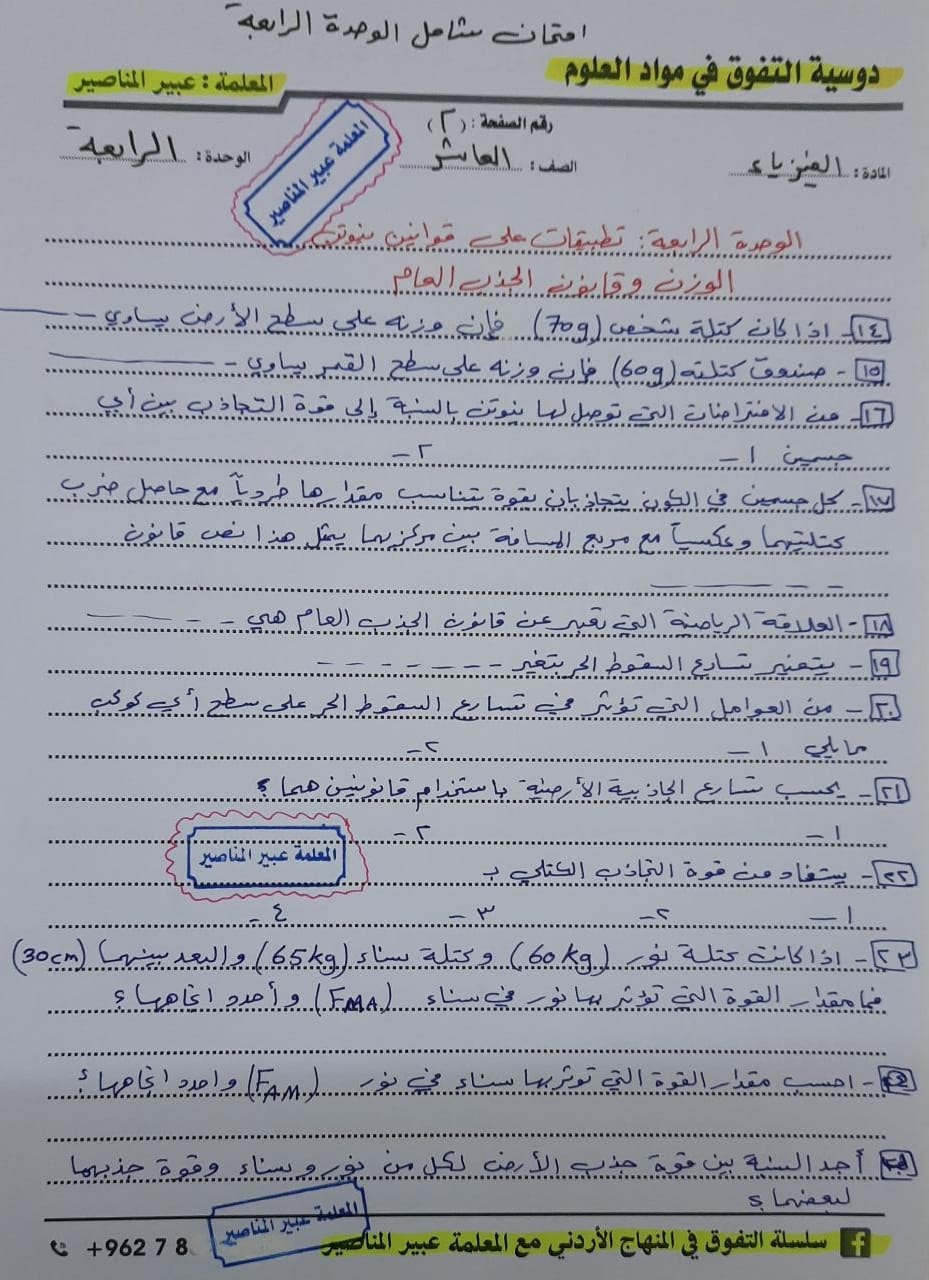 امتحان شامل الوحدة الرابعة
دوسية التفوق في مواد العلوم
المعلمة : عبير المناصير
رقم الصفحة : (٢)
المادة : الفيزياء
الصف : العاشر
الوحدة : الرابعة
المعلمة عبير المناصير
الوحدة الرابعة : تطبيقات على قوانين نيوتن
الوزن وقانون الجذب العام
١٤- اذا كان كتلة شخص (70g) فإن وزنه على سطح الأرض يساوي -
١٥- صندوق كتلته (60g) فإن وزنه على سطح القمر يساوي -
١٦- من الافتراضات التي توصل لها نيوتن بالنسبة إلى قوة التجاذب بين أي
جسمين ١- ٢-
١٧- كل جسمين في الكون يتجاذبان بقوة يتناسب مقدارها طردياً مع حاصل ضرب
كتلتيهما وعكسياً مع مربع المسافة بين مركزيهما يمثل هذا نص قانون
- - - - -
١٨- العلاقة الرياضية التي تعبر عن قانون الجذب العام هي - - - -
١٩- يتغير تسارع السقوط الحر بتغير - - - - - - -
٢٠- من العوامل التي تؤثر في تسارع السقوط الحر على سطح أي كوكب
مايلي ١- ٢-
٢١- يحسب تسارع الجاذبية الأرضية باستخدام قانونين هما ؟
١- ٢-
المعلمة عبير المناصير
٢٢- يستفاد من قوة التجاذب الكتلي بـ
١- ٢- ٣- ٤-
٢٣- اذا كانت كتلة نور (60kg) وكتلة سناء (65kg) والبعد بينهما (30cm)
فما مقدار القوة التي تؤثر بها نور في سناء (FMA) وأحدد اتجاهها ؟
- احسب مقدار القوة التي تؤثر بها سناء في نور (FAM) واحدد اتجاهها ؟
أجد النسبة بين قوة جذب الأرض لكل من نور وسناء وقوة جذبهما
لبعضهما ؟
المعلمة عبير المناصير
سلسلة التفوق في المنهاج الأردني مع المعلمة عبير المناصير
+962 7 8